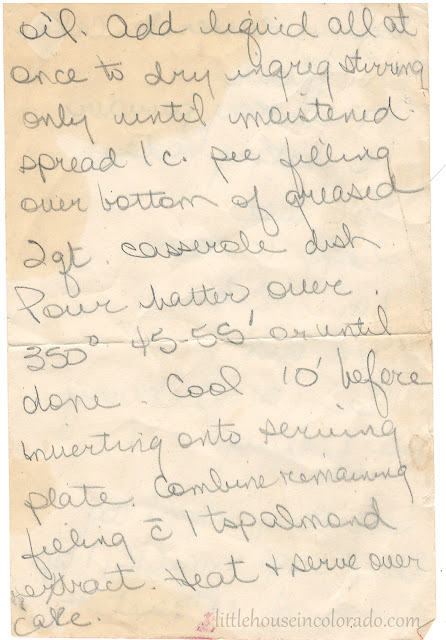 oil. Add liquid all at
once to dry ingreg stirring
only until moistened.
spread 1 c. pee filling
over bottom of greased
2 qt. casserole dish.
Pour batter over.
350° 45-55' or until
done. Cool 10' before
inverting onto serving
plate. Combine remaining
filling c̄ 1 tsp almond
extract. Heat + serve over
cake.
littlehouseincolorado.com